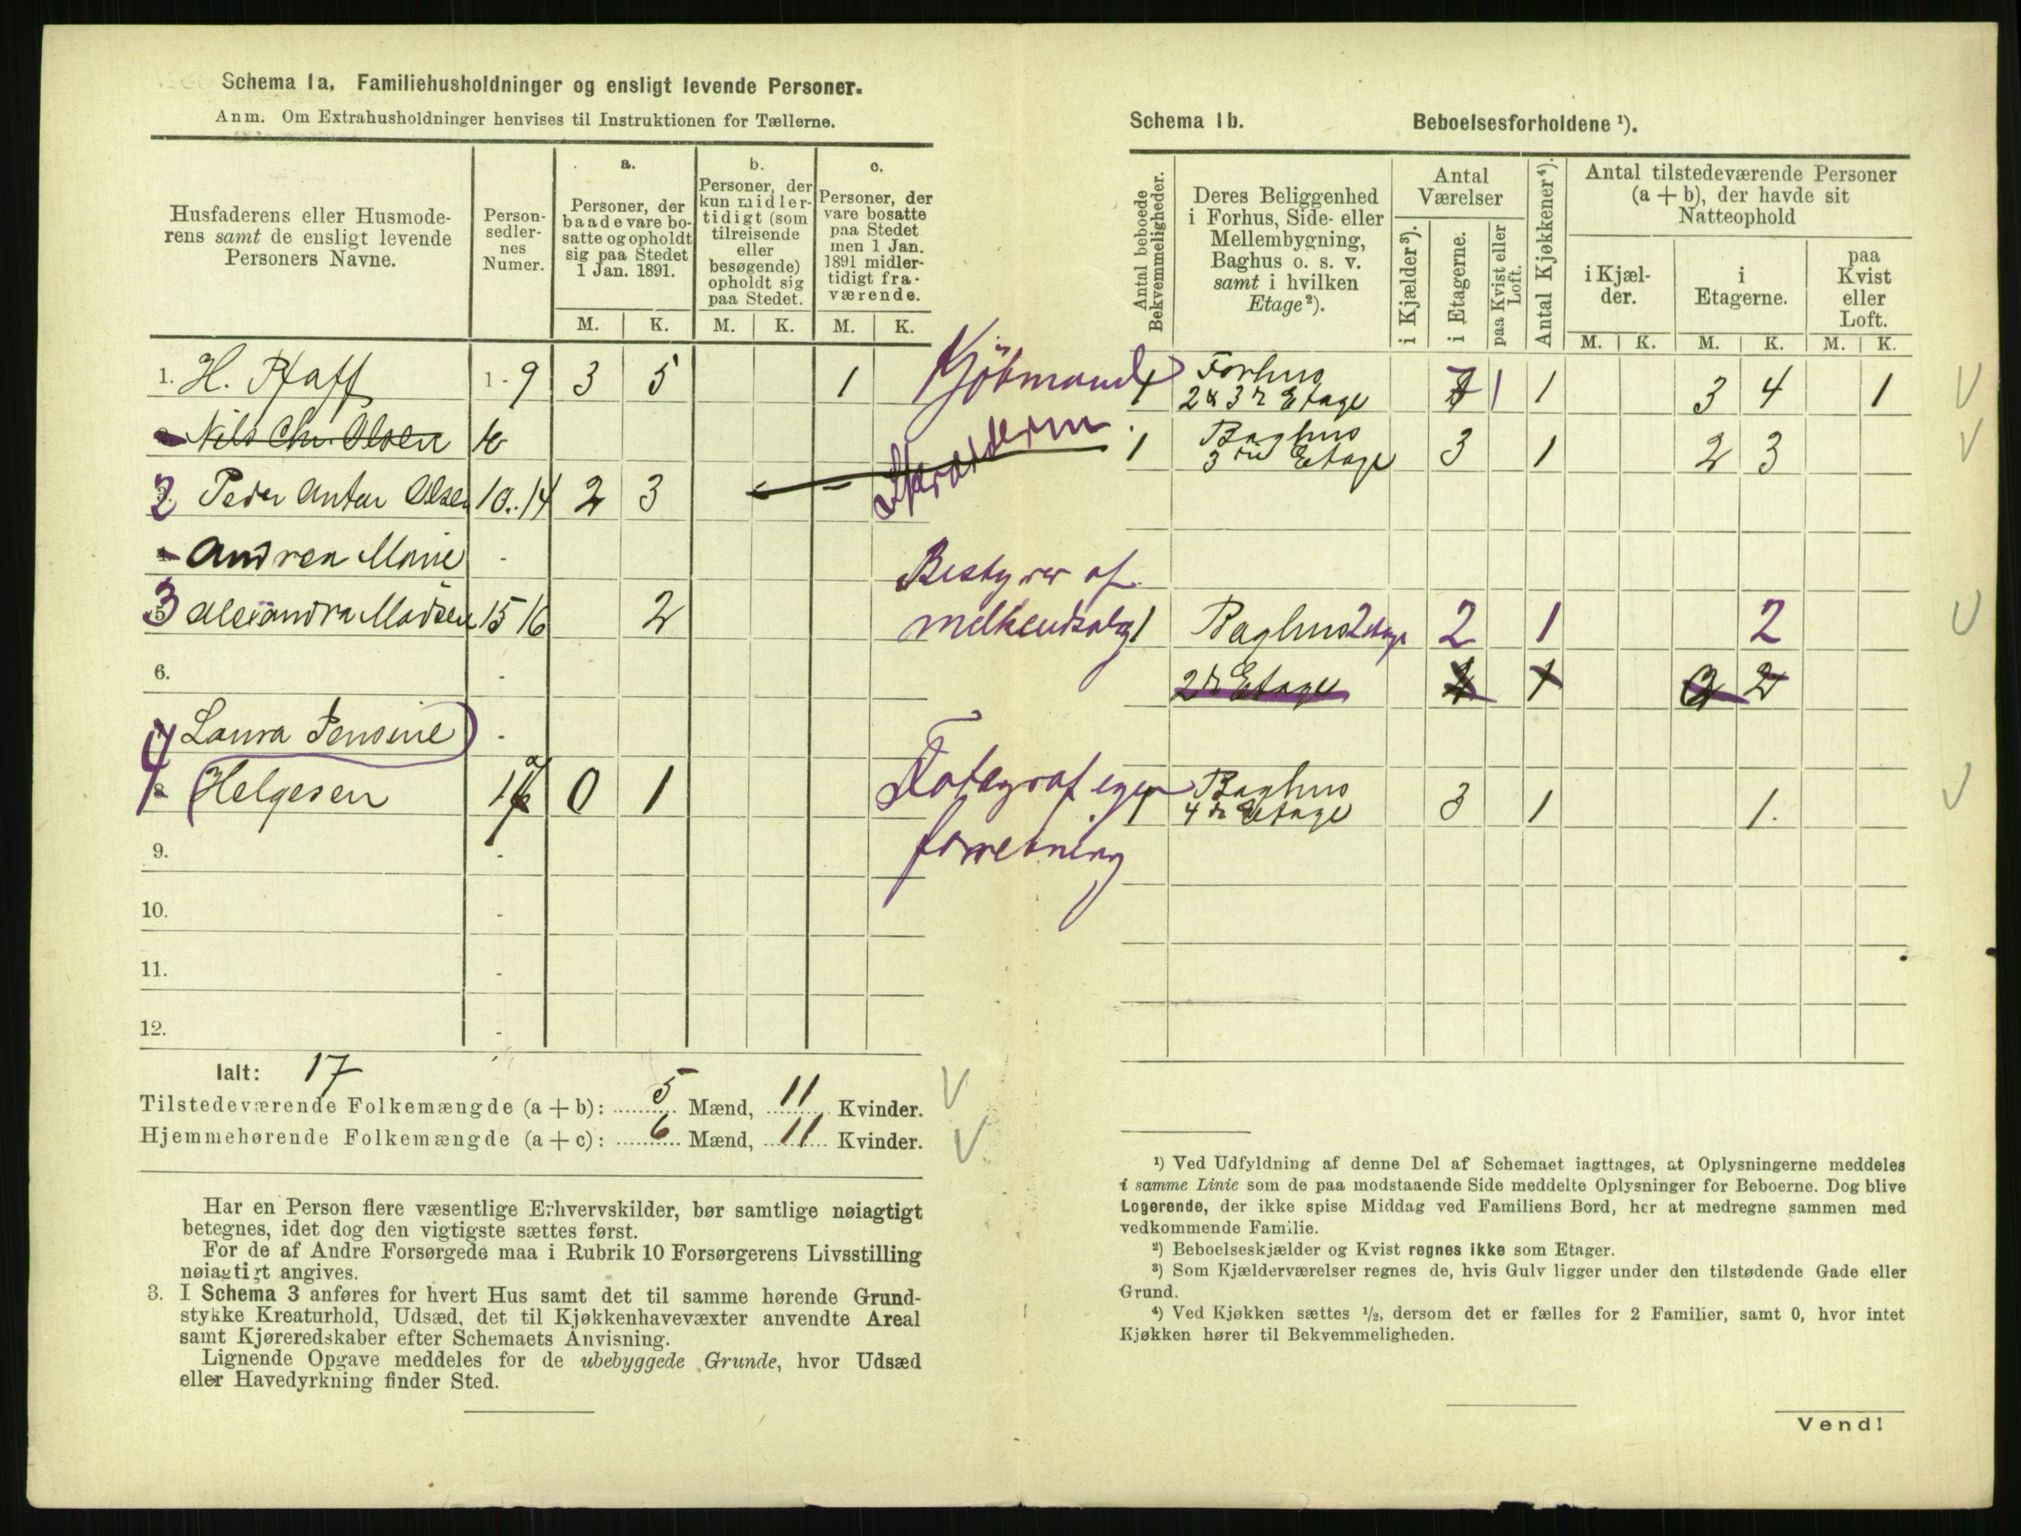 Schema 1a. Familiehusholdninger og ensligt levende Personer.
Anm. Om Extrahusholdninger henvises til Instruktionen for Tællerne.
Husfaderens eller Husmode-
rens samt de ensligt levende
Personers Navne.
Person-
sedler-
nes
Numer.
a.
Personer, der
baade vare bo-
satte og opholdt
sig paa Stedet
1 Jan. 1891.
b.
Personer, der
kun midler-
tidigt (som
tilreisende
eller
besøgende)
opholdt sig
paa Stedet.
c.
Personer, der
vare bosatte
paa Stedet
men 1 Jan.
1891 midler-
tidigt fra-
værende.
M. K. M. K. M. K.
1. H. Pfaff 1-9 3 5 1 Kjöbmand
Nils Chr. Olsen 10
2 Peder Antar Olsen 10..14 2 3
Andrea Marie -
3 Alexandra Madsen 15 16 2 Bestyrer af
melkeudsalg
6. -
4 Laura Jensine -
Helgesen 17 0 1 Fotograf egen
forretning
9. -
10. -
11. -
12. -
Ialt: 17
Tilstedeværende Folkemængde (a + b): 5 Mænd, 11 Kvinder.
Hjemmehørende Folkemængde (a + c): 6 Mænd, 11 Kvinder.
Har en Person flere væsentlige Erhvervskilder, bør samtlige nøiagtigt
betegnes, idet dog den vigtigste sættes først.
For de af Andre Forsørgede maa i Rubrik 10 Forsørgerens Livsstilling
nøiagtigt angives.
3. I Schema 3 anføres for hvert Hus samt det til samme hørende Grund-
stykke Kreaturhold, Udsæd, det til Kjøkkenhavevæxter anvendte Areal
samt Kjøreredskaber efter Schemaets Anvisning.
Lignende Opgave meddeles for de ubebyggede Grunde, hvor Udsæd
eller Havedyrkning finder Sted.
Schema 1b. Beboelsesforholdene ¹).
Antal beboede
Bekvemmeligheder.
Deres Beliggenhed
i Forhus, Side- eller
Mellembygning,
Baghus o. s. v.
samt i hvilken
Etage²).
Antal
Værelser
i Kjælder³).
i Etagerne.
paa Kvist eller
Loft.
Antal Kjøkkener⁴).
Antal tilstedeværende Personer
(a + b), der havde sit
Natteophold
i Kjæl-
der.
i
Etagerne.
paa
Kvist
eller
Loft.
M. K. M. K. M. K.
1 Forhus
2 & 3 Etage 7 1 1 3 4 1
1 Baghus
3 Etage 3 1 2 3
1 Baghus 2 Etage 2 1 2
2 Etage 2
1 Baghus
4 Etage 3 1 1.
¹) Ved Udfyldning af denne Del af Schemaet iagttages, at Oplysningerne meddeles
i samme Linie som de paa modstaaende Side meddelte Oplysninger for Beboerne. Dog blive
Logerende, der ikke spise Middag ved Familiens Bord, her at medregne sammen med
vedkommende Familie.
²) Beboelseskjælder og Kvist regnes ikke som Etager.
³) Som Kjælderværelser regnes de, hvis Gulv ligger under den tilstødende Gade eller
Grund.
⁴) Ved Kjøkken sættes ½, dersom det er fælles for 2 Familier, samt 0, hvor intet
Kjøkken hører til Bekvemmeligheden.
Vend!